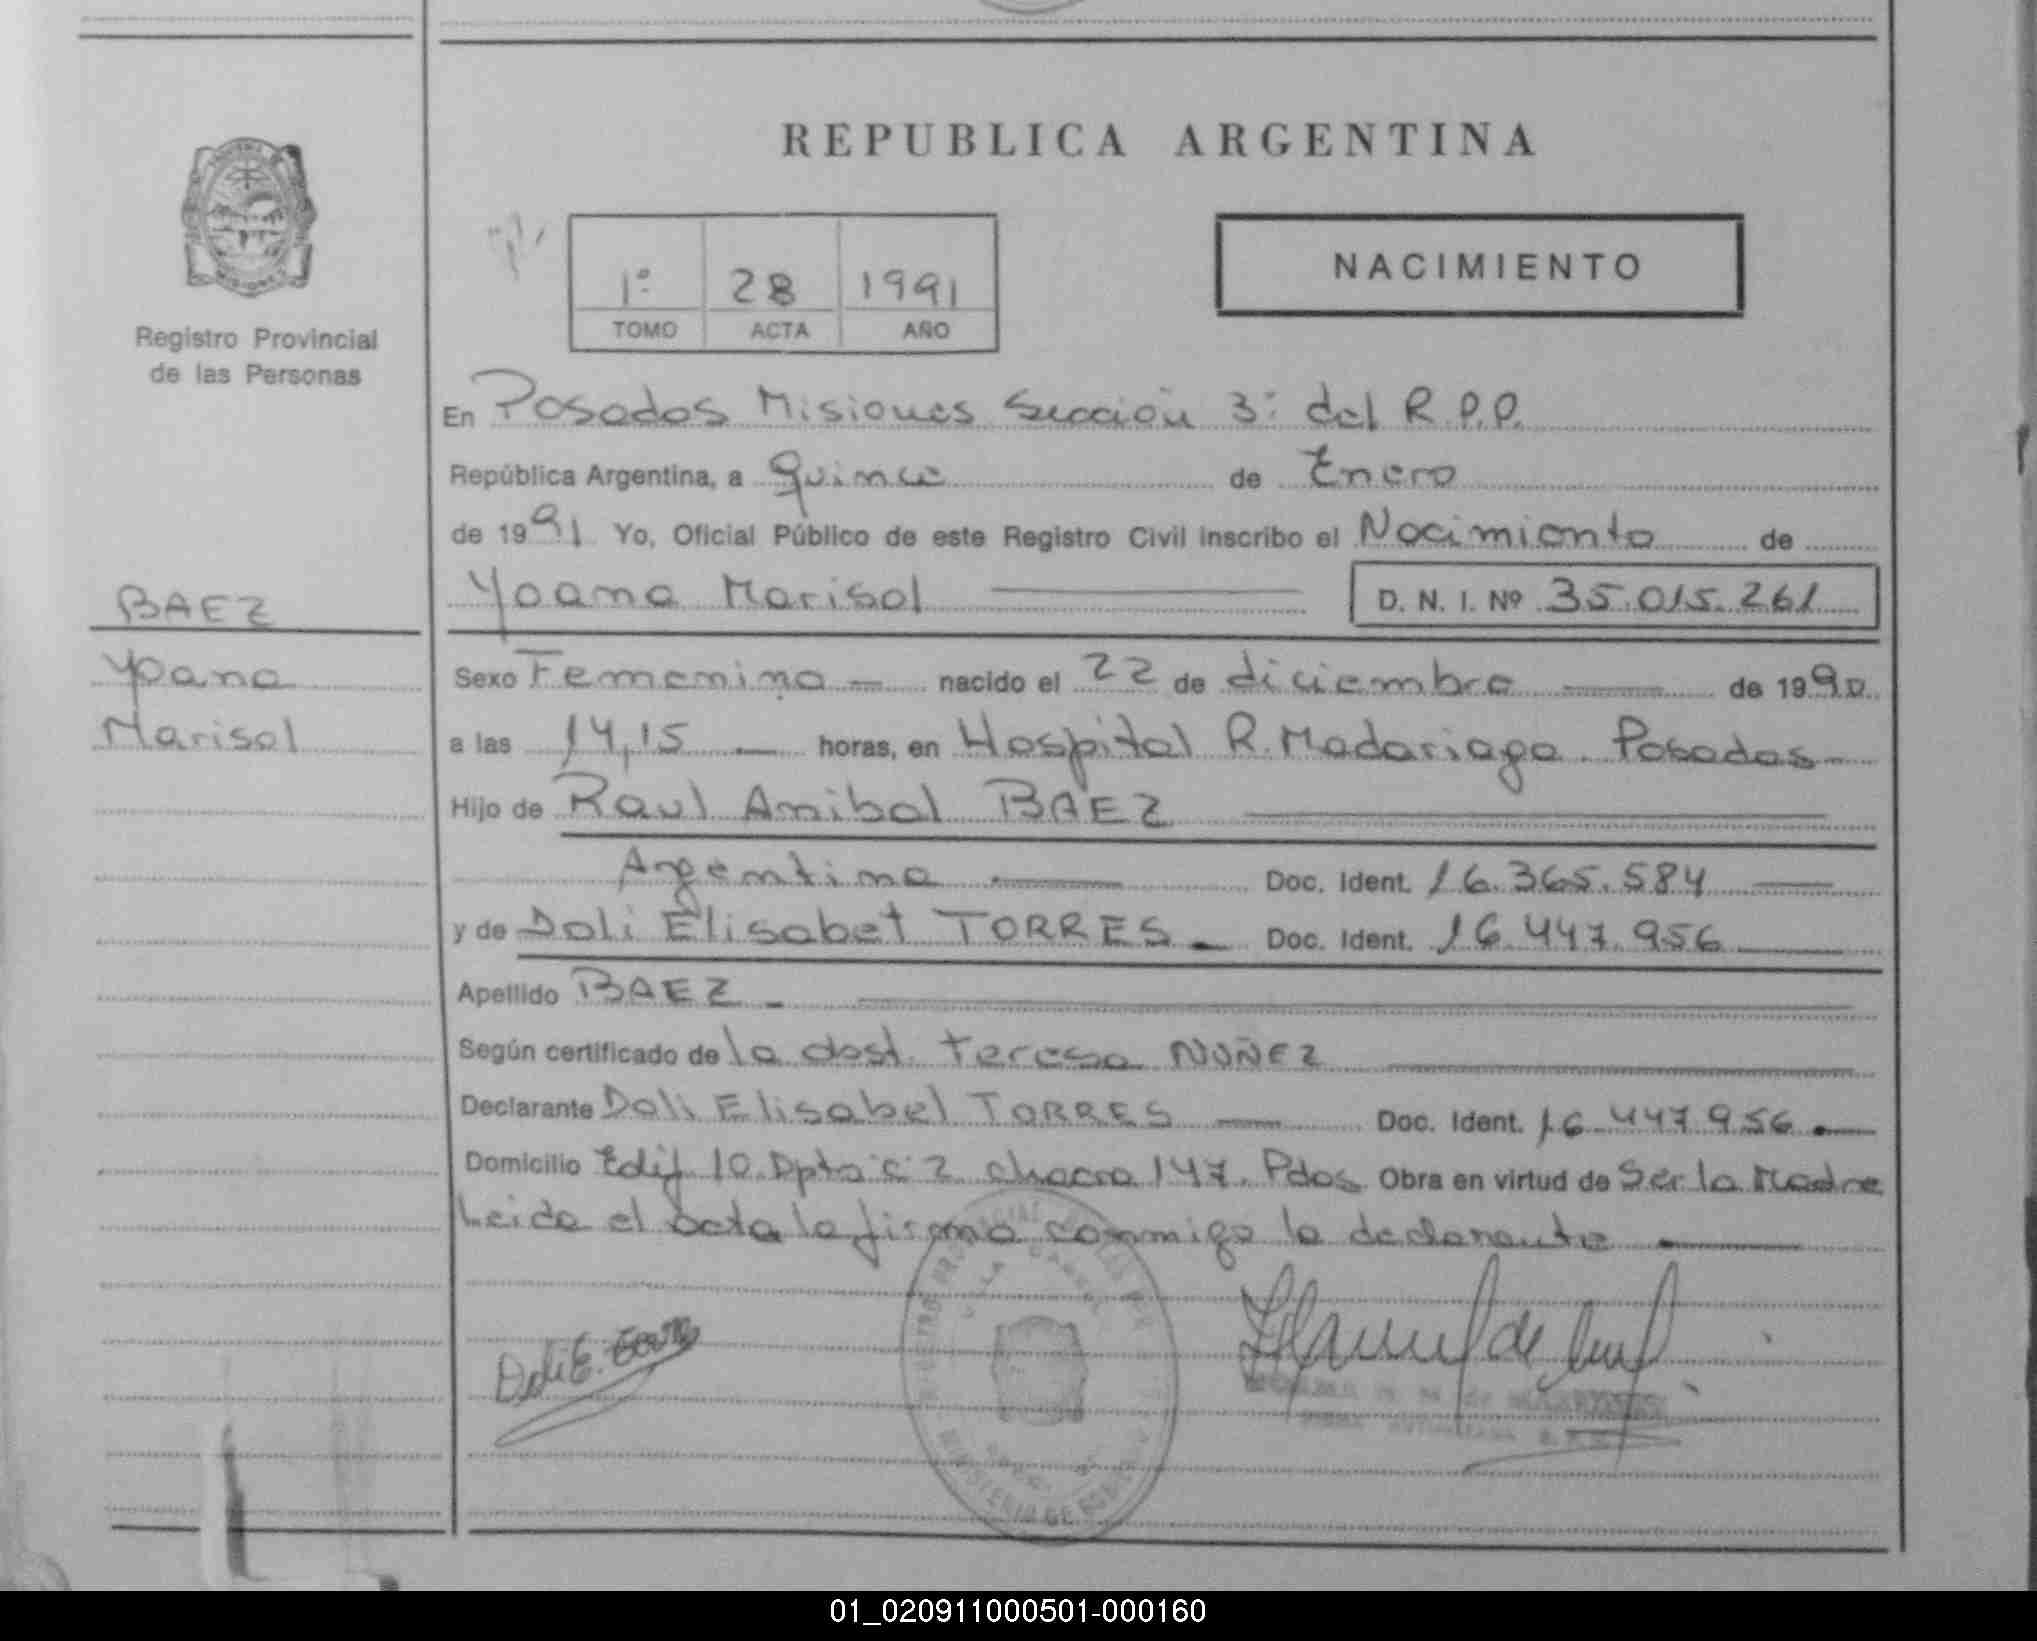 REPUBLICA ARGENTINA
1º 28 1991
TOMO ACTA AÑO
NACIMIENTO
Registro Provincial
de las Personas
En Posadas Misiones Sección 3ª del R.P.P.
República Argentina, a quince de Enero
de 1991 Yo, Oficial Público de este Registro Civil inscribo el Nacimiento de
Yoana Marisol D. N. I. Nº 35.015.261
BAEZ
Yoana
Marisol
Sexo Femenino nacido el 22 de diciembre de 1990
a las 14,15 horas, en Hospital R. Madariaga. Posadas
Hijo de Raul Anibal BAEZ
Argentina Doc. Ident. 16.365.584
y de Doli Elisabet TORRES Doc. Ident. 16.447.956
Apellido BAEZ
Según certificado de la obst. Teresa NUÑEZ
Declarante Doli Elisabet TORRES Doc. Ident. 16.447.956
Domicilio Edif 10 Dpto "C" 2 chacra 147. Pdas Obra en virtud de Ser la Madre
Leida el acta la firma conmigo la declarante
Doli E. Torres
MINISTERIO DE GOBIERNO
01_020911000501-000160